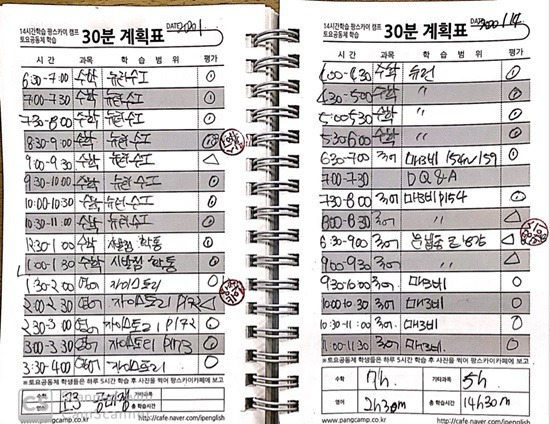 14시간학습 팡스카이 캠프
토요공동체 학습
30분 계획표
DATE
시 간 과목 학 습 범 위 평가
6:30-7:00 수학 뉴런수Ⅰ
7:00-7:30 수학 뉴런수Ⅰ
7:30-8:00 수학 뉴런수Ⅰ
8:30-9:00 수학 뉴런수Ⅰ
9:00-9:30 수학 뉴런수Ⅰ △
9:30-10:00 수학 뉴런수Ⅰ
10:00-10:30 수학 뉴런수Ⅰ
10:30-11:00 수학 뉴런수Ⅰ
수학 시발점 확통
1:00-1:30 수학 시발점 확통
1:30-2:00 영어 자이스토리
2:00-2:30 영어 자이스토리 P172 △
2:30-3:00 영어 자이스토리 P172
3:00-3:30 영어 자이스토리 P173
3:30-4:00 영어 자이스토리
※토요공동체 학생들은 하루 5시간 학습 후 사진을 찍어 팡스카이카페에 보고
영어 고3
총 학습시간
www.pangcamp.co.kr
http://cafe.naver.com/ipenglish
14시간학습 팡스카이 캠프
토요공동체 학습
30분 계획표
DATE
시 간 과목 학 습 범 위 평가
수학 뉴런
4:30-5:00 수학 〃
5:00-5:30 수학 〃
5:30-6:00 수학 〃
6:30-7:00 국어 매3비 154~159
7:00-7:30 Q&A
7:30-8:00 국어 매3비 P154
8:00-8:30 국어 〃 △
국어 △
9:00-9:30 국어 〃 △
9:30-10:00 국어 매3비
10:00-10:30 국어 매3비
10:30-11:00 국어 매3비
11:00-11:30 국어 매3비
※토요공동체 학생들은 하루 5시간 학습 후 사진을 찍어 팡스카이카페에 보고
수학 7h 기타과목 5h
영어 2h30m 총 학습시간 14h30m
www.pangcamp.co.kr
http://cafe.naver.com/ipenglish